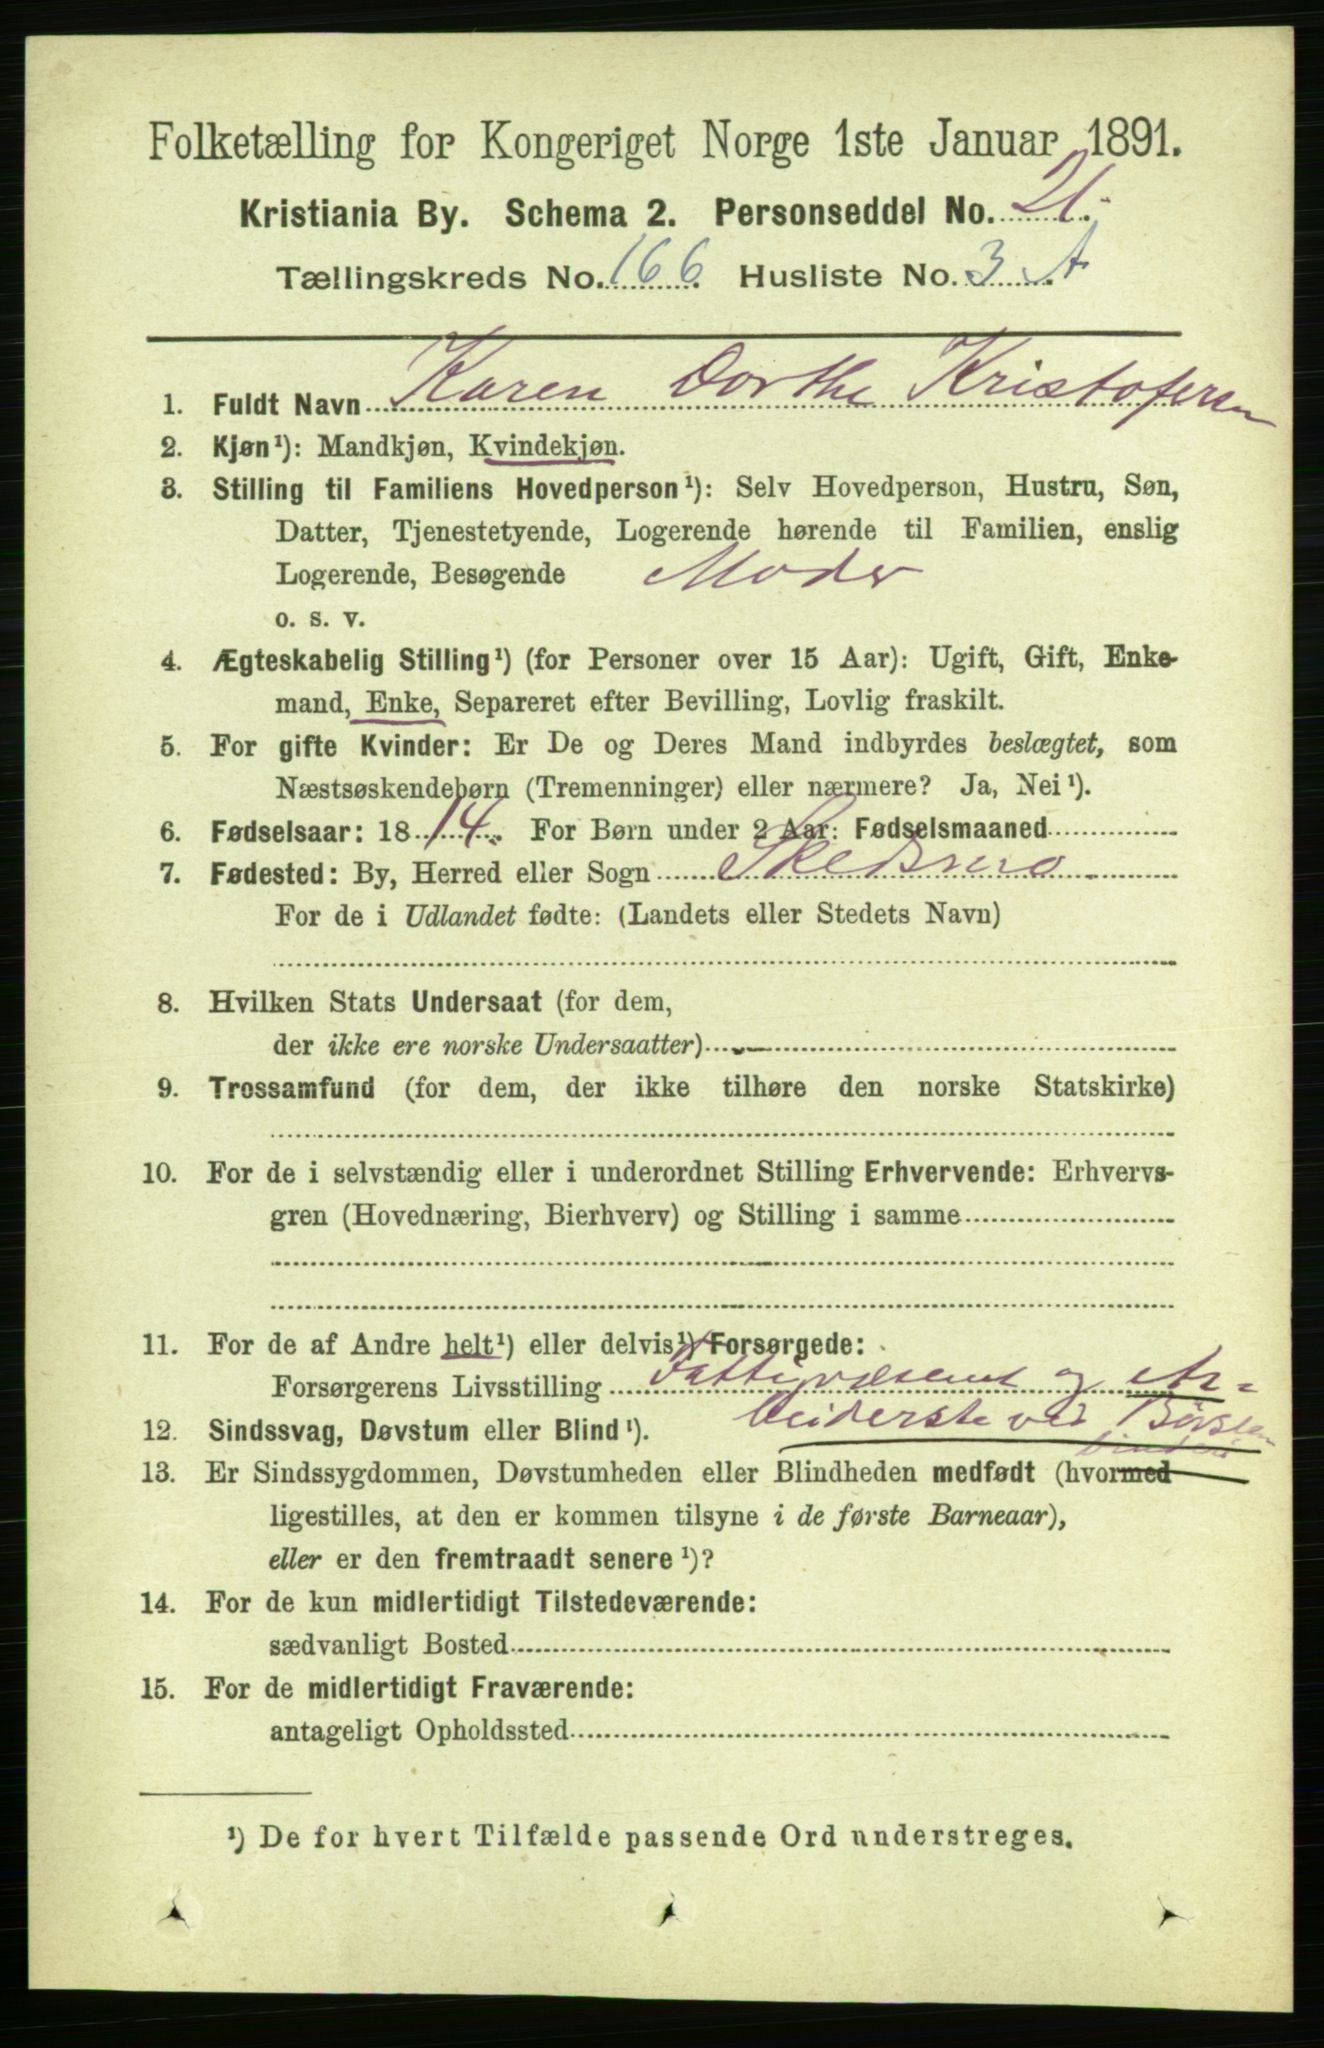 Folketælling for Kongeriget Norge 1ste Januar 1891.
Kristiania By. Schema 2. Personseddel No. 21.
Tællingskreds No. 166. Husliste No. 3 A
1. Fuldt Navn Karen Dorthe Kristofersen
2. Kjøn¹): Mandkjøn, Kvindekjøn.
3. Stilling til Familiens Hovedperson¹): Selv Hovedperson, Hustru, Søn,
Datter, Tjenestetyende, Logerende hørende til Familien, enslig
Logerende, Besøgende Moder
o. s. v.
4. Ægteskabelig Stilling¹) (for Personer over 15 Aar): Ugift, Gift, Enke-
mand, Enke, Separeret efter Bevilling, Lovlig fraskilt.
5. For gifte Kvinder: Er De og Deres Mand indbyrdes beslægtet, som
Næstsøskendebørn (Tremenninger) eller nærmere? Ja, Nei¹).
6. Fødselsaar: 1814. For Børn under 2 Aar: Fødselsmaaned
7. Fødested: By, Herred eller Sogn Skedsmo
For de i Udlandet fødte: (Landets eller Stedets Navn)
8. Hvilken Stats Undersaat (for dem,
der ikke ere norske Undersaatter)
9. Trossamfund (for dem, der ikke tilhøre den norske Statskirke)
10. For de i selvstændig eller i underordnet Stilling Erhvervende: Erhvervs-
gren (Hovednæring, Bierhverv) og Stilling i samme
11. For de af Andre helt¹) eller delvis¹) Forsørgede:
Forsørgerens Livsstilling Fattigvæsenet og Ar-
beiderske ved Børsten
binderi
12. Sindssvag, Døvstum eller Blind¹).
13. Er Sindssygdommen, Døvstumheden eller Blindheden medfødt (hvormed
ligestilles, at den er kommen tilsyne i de første Barneaar),
eller er den fremtraadt senere¹)?
14. For de kun midlertidigt Tilstedeværende:
sædvanligt Bosted
15. For de midlertidigt Fraværende:
antageligt Opholdssted
¹) De for hvert Tilfælde passende Ord understreges.